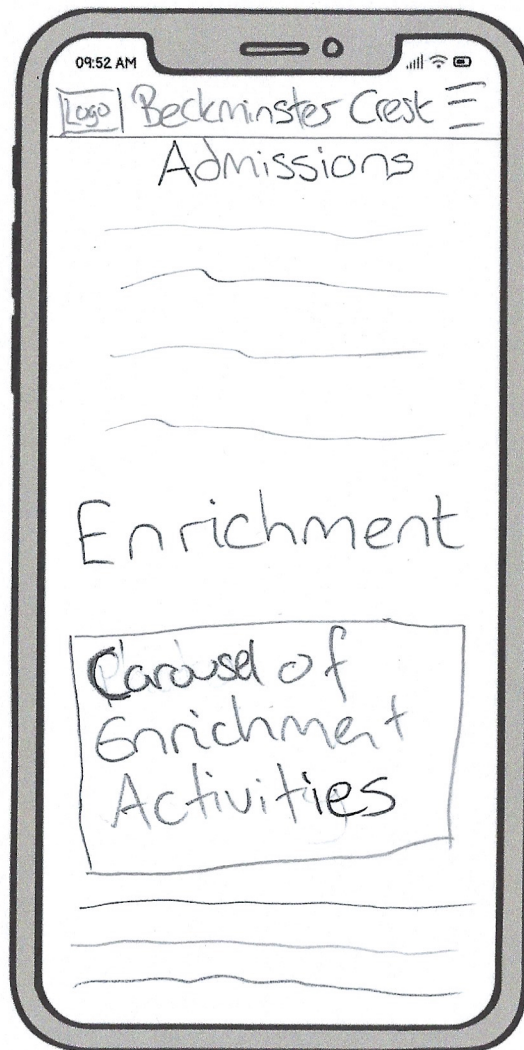 09:52 AM
Logo Beckminster Crest
Admissions
Enrichment
Carousel of
Enrichment
Activities